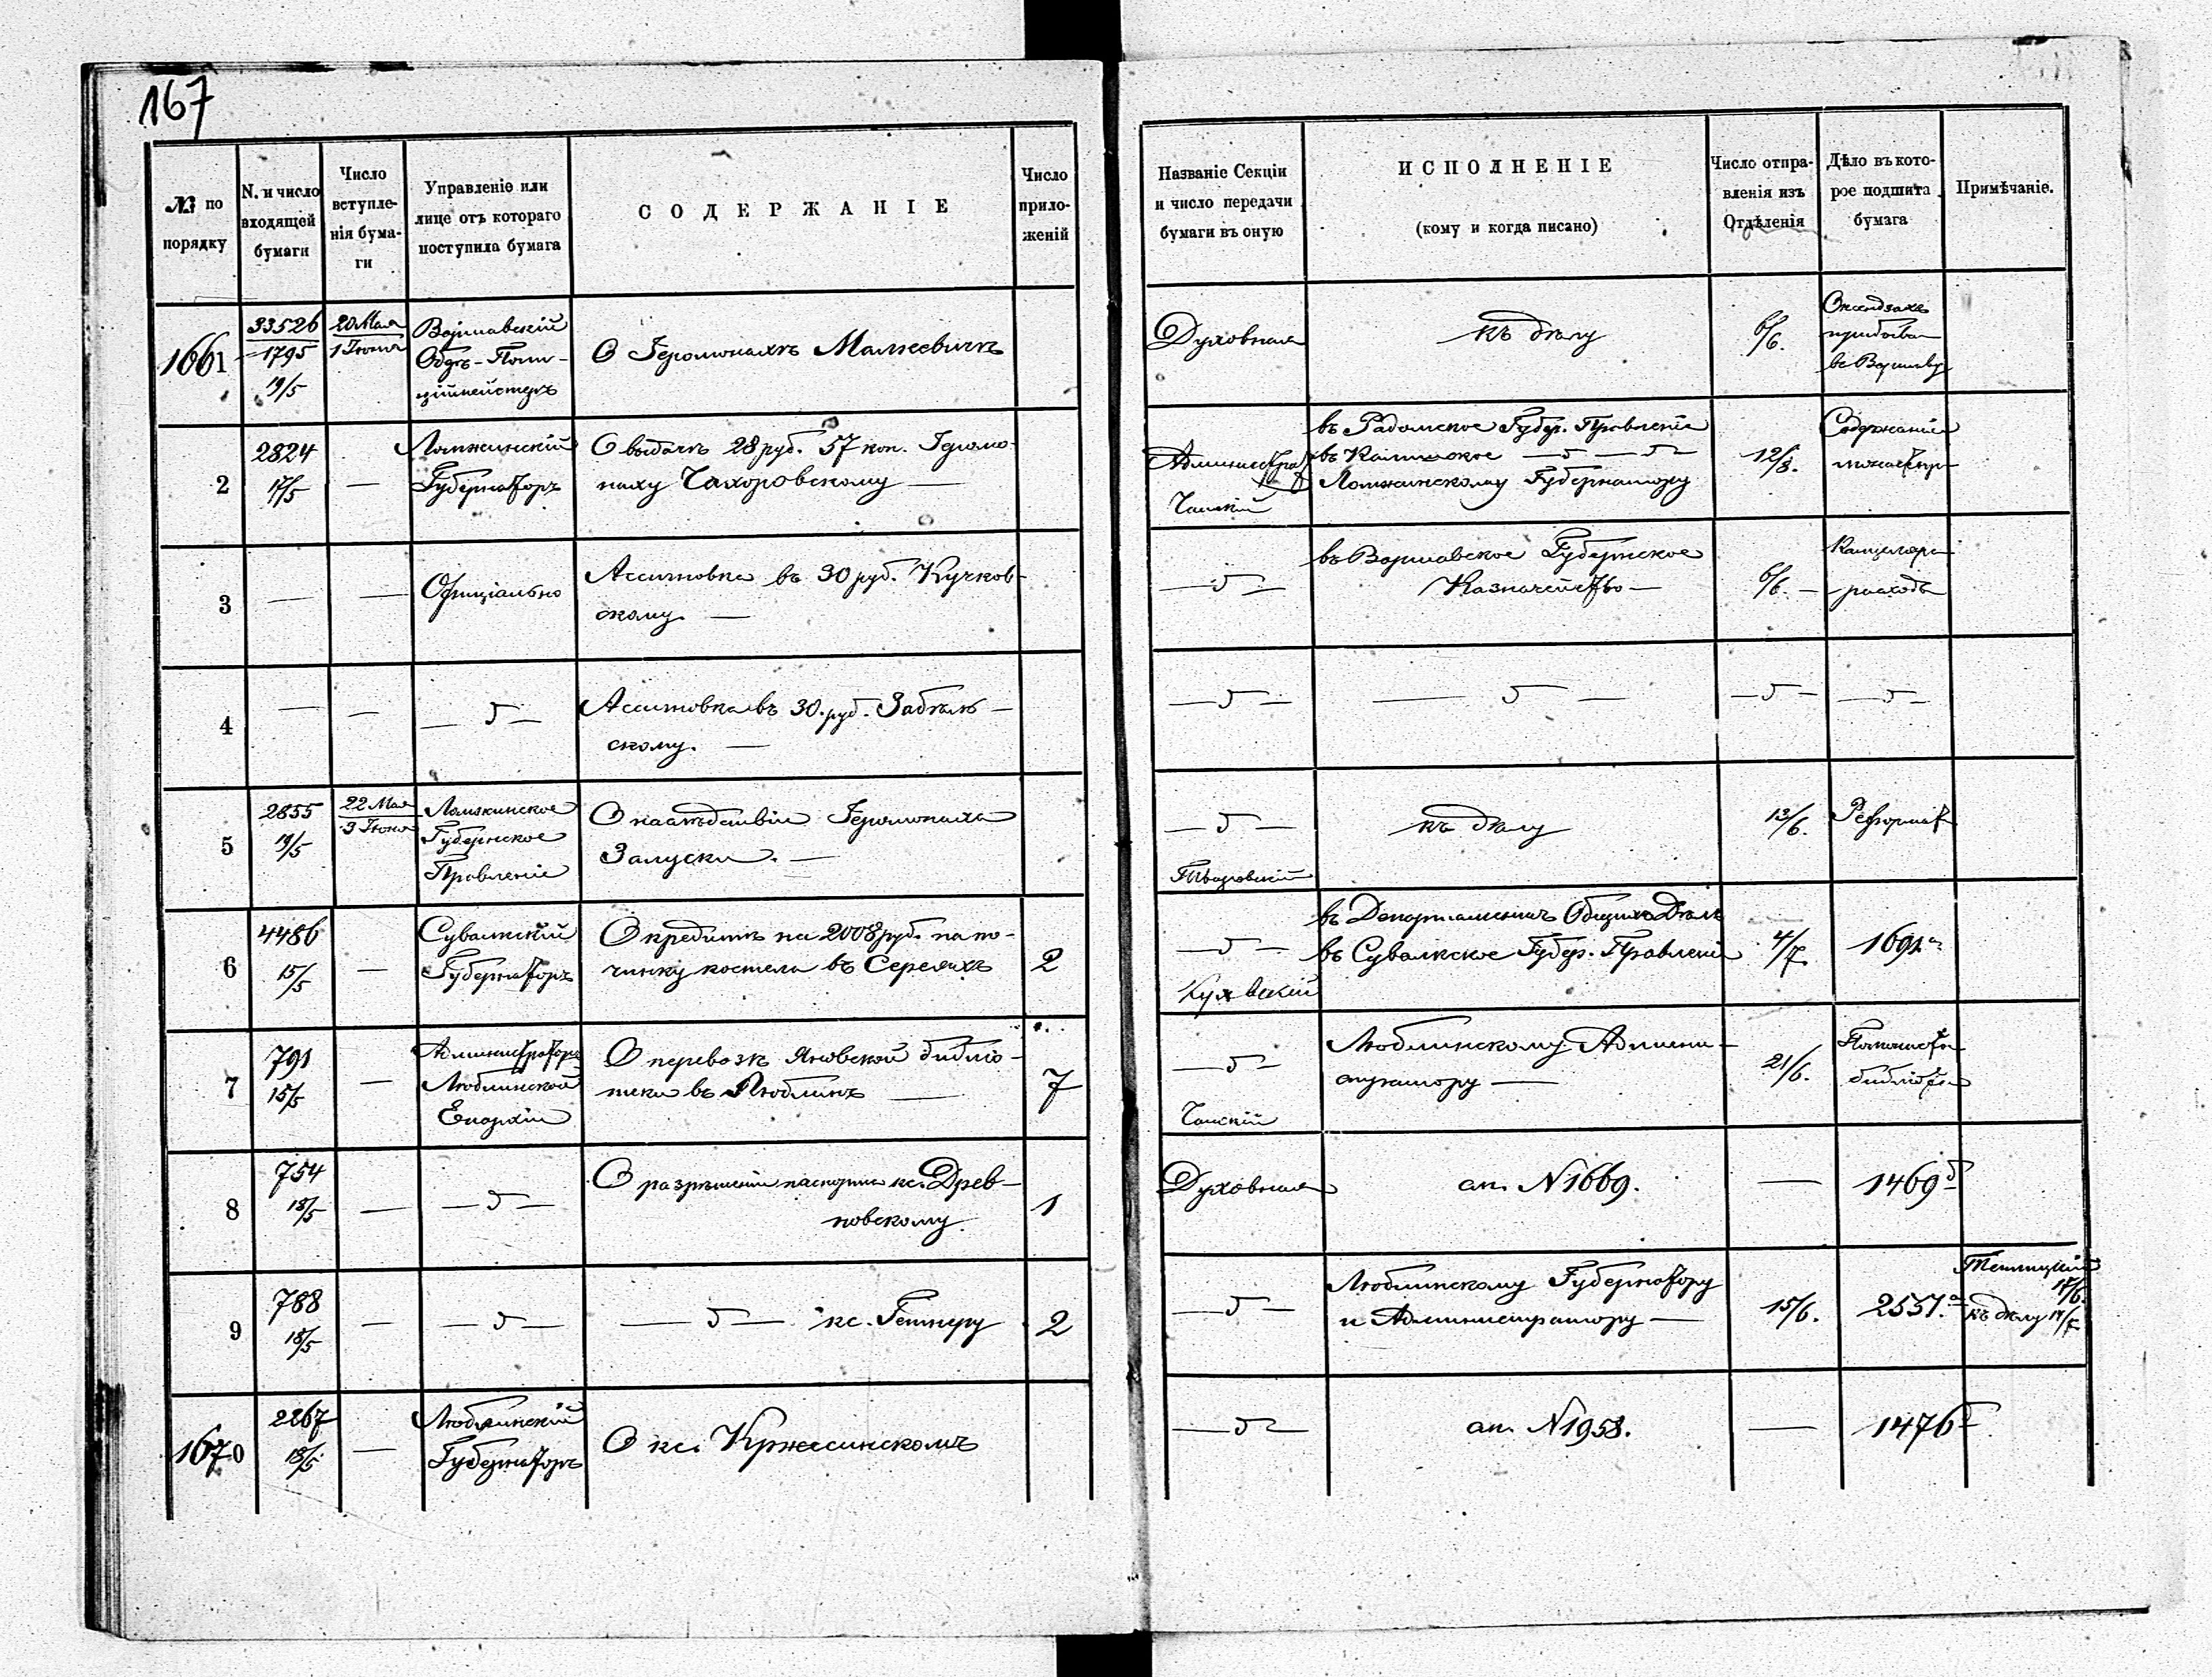 167
№ по порядку
N. и число входящей бумаги
Число вступле-нія бума-ги
Управленіе или лице отъ котораго поступила бумага
СОДЕРЖАНІЕ
Число прило-женій
Названіе Секціи и число передачи бумаги въ оную
ИСПОЛНЕНІЕ
(кому и когда писано)
Число отпра-вленія изъ Отдѣленія
Дѣло въ кото-рое подшита бумага
Примѣчаніе.
1661
33526
1795
19/5
20 Мая
1 Іюня
Варшавскій
Оберъ-Поли-
ційместеръ
О Іеромонахѣ Малкевичѣ
Духовная
къ дѣлу
6/6.
въ Варшаву
2
2824
17/5
—
Ломжинскій
Губернаторъ
О выдачѣ 28 руб. 57 коп. Іеромо-
наху Чахоровскому —
въ Радомское Губер. Правленіе
въ Калишское — " —
Ломжинскому Губернатору
12/8.
Содержаніе
3
—
—
Офиціально
Ассигновка въ 30 руб. Кучков-
скому. —
— " —
въ Варшавское Губернское
Казначейство —
6/6. —
расходы
4
—
—
— " —
Ассигновка въ 30. руб. Забѣль-
скому. —
— " —
— " —
— " —
— " —
5
2855
19/5
22 Мая
3 Іюня
Ломжинское
Губернское
Правленіе
О наслѣдствіи Іеромонаха
Залуски. —
— " —
къ дѣлу
13/6.
Реформат
6
4486
15/5
—
Сувалкскій
Губернаторъ
О кредитѣ на 2008 руб. на по-
чинку костела въ Сереяхъ
2
— " —
въ Департаментъ Общихъ Дѣлъ
въ Сувалкское Губер. Правленіе
4/7.
1691 а
7
791
15/5
—
Администраторъ
Люблинской
Епархіи
О перевозкѣ Яновской библіо-
теки въ Люблинъ —
7
— " —
Люблинскому Админи-
стратору —
21/6.
8
754
18/5
—
— " —
О разрѣшеніи паспорта кс. Древ-
новскому.
1
Духовная
ап. N 1669.
—
1469 б
9
788
18/5
—
— " —
— " — кс. Гетнеру
2
— " —
Люблинскому Губернатору
и Администратору —
15/6.
2551. а
къ дѣлу
1670
2267
18/5
—
Люблинскій
Губернаторъ
О кс. Кржесинскомъ
— " —
ап. N 1958.
—
1476